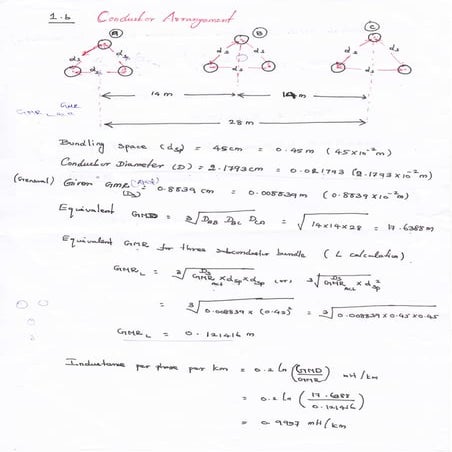 1.b Conductor Arrangement
A B C
ds dsp ds ds ds ds
ds ds ds
14m 14m
28m
GMR
GMR L
Bundling Space (dsp) = 45cm = 0.45m (45x10⁻² m)
Conductor Diameter (D) = 2.1793cm = 0.021793 (2.1793x10⁻² m)
Given GMR = 0.8839 cm = 0.008839m (0.8839x10⁻² m)
(Ds)
Equivalent GMD = ³√DAB DBC DCA = ³√14x14x28 = 17.6388m
Equivalent GMR for three subconductor bundle (L calculation)
GMR L = ³√Ds GMR act x dsp x dsp (or) ³√Ds GMR act x dsp²
= ³√0.008839 x (0.45)² = ³√0.008839x0.45x0.45
GMR L = 0.121416 m
Inductance per phase per Km = 0.2 ln (GMD/GMR) mH/km
= 0.2 ln (17.6388/0.121416)
= 0.9957 mH/km